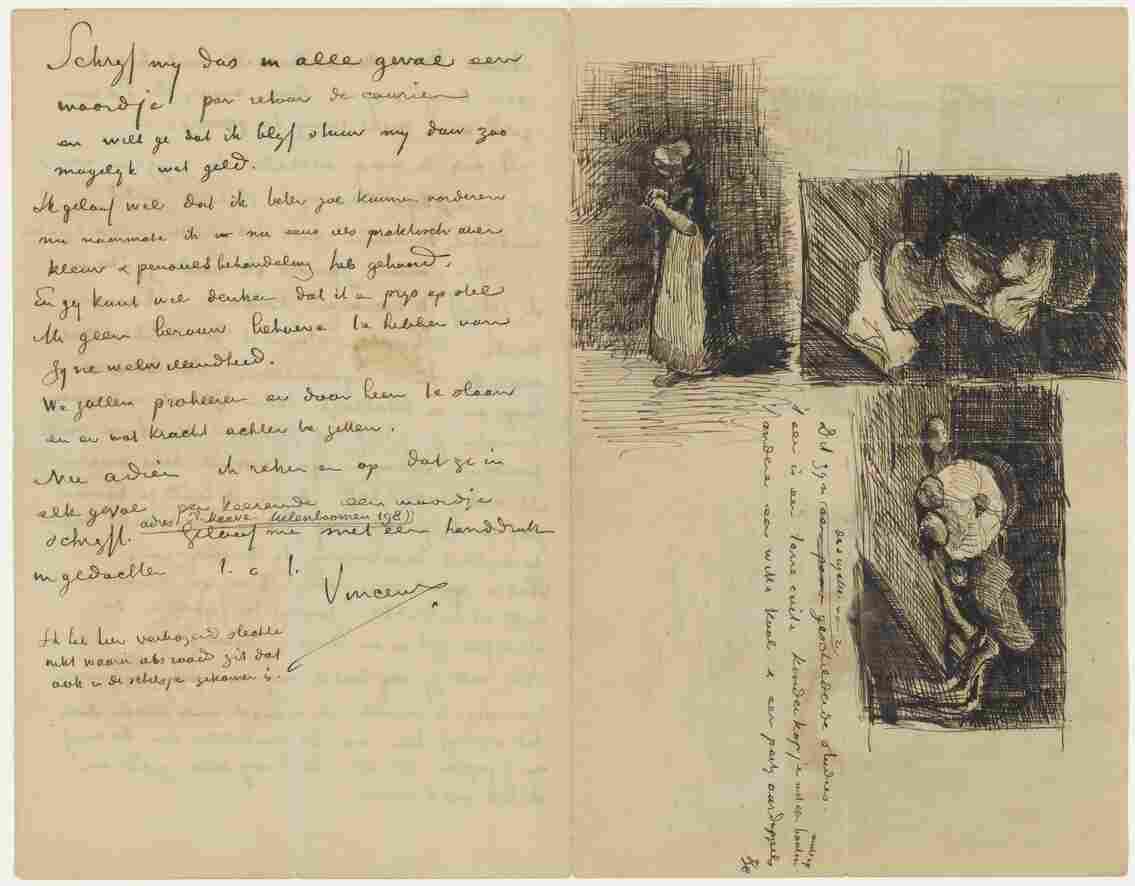 Schrijf mij dus in alle geval een
woordje par retour de courrier
en wilt ge dat ik blijf stuur mij dan zoo
mogelijk wat geld.
Ik geloof wel dat ik beter zal kunnen vorderen
nu naarmate ik nu eens iets praktisch over
kleur & penseelbehandeling heb gehoord.
En gij kunt wel denken dat ik er prijs op stel
M. geen berouw behoeve te hebben van
zijne welwillendheid.
We zullen probeeren er door heen te slaan
en er wat kracht achter te zetten.
Nu adieu ik reken er op dat ge in
elk geval per keerende een woordje
adres Keeve Uilenboomen 198
schrijft. Geloof me met een handdruk
in gedachten t. à t.
Vincent
Ik heb hier verbazend slechte
inkt waarin zit dat
ook in de schetsje gekomen is.
Dit zijn een paar geschilderde studies.
't een is een terre cuite kinderkopje met een
't andere een witte kool & een partij aardappels